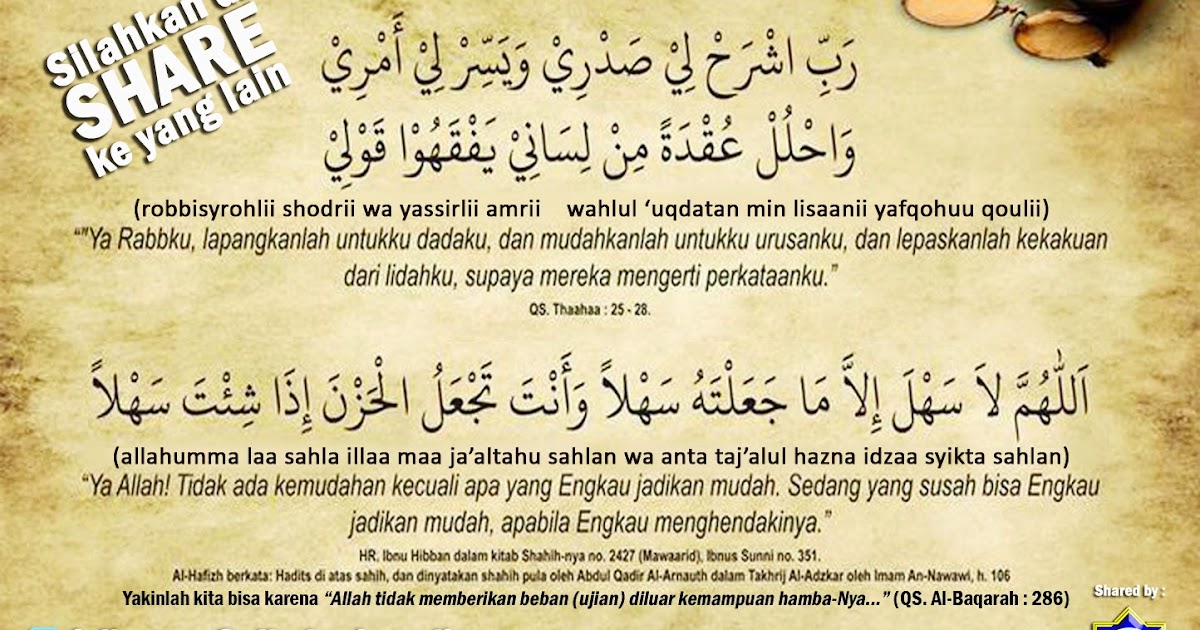 Silahkan
SHARE
ke yang lain
رَبِّ اشْرَحْ لِيْ صَدْرِيْ وَيَسِّرْ لِيْ أَمْرِيْ
وَاحْلُلْ عُقْدَةً مِنْ لِسَانِيْ يَفْقَهُوْا قَوْلِيْ
(robbisyrohlii shodrii wa yassirlii amrii wahlul ‘uqdatan min lisaanii yafqohuu qoulii)
“"Ya Rabbku, lapangkanlah untukku dadaku, dan mudahkanlah untukku urusanku, dan lepaskanlah kekakuan
dari lidahku, supaya mereka mengerti perkataanku.”
QS. Thaahaa : 25 - 28.
اَللّٰهُمَّ لاَ سَهْلَ إِلاَّ مَا جَعَلْتَهُ سَهْلاً وَأَنْتَ تَجْعَلُ الْحَزْنَ إِذَا شِئْتَ سَهْلاً
(allahumma laa sahla illaa maa ja’altahu sahlan wa anta taj’alul hazna idzaa syikta sahlan)
“Ya Allah! Tidak ada kemudahan kecuali apa yang Engkau jadikan mudah. Sedang yang susah bisa Engkau
jadikan mudah, apabila Engkau menghendakinya.”
HR. Ibnu Hibban dalam kitab Shahih-nya no. 2427 (Mawaarid), Ibnus Sunni no. 351.
Al-Hafizh berkata: Hadits di atas sahih, dan dinyatakan shahih pula oleh Abdul Qadir Al-Arnauth dalam Takhrij Al-Adzkar oleh Imam An-Nawawi, h. 106
Yakinlah kita bisa karena “Allah tidak memberikan beban (ujian) diluar kemampuan hamba-Nya...” (QS. Al-Baqarah : 286)
Shared by :